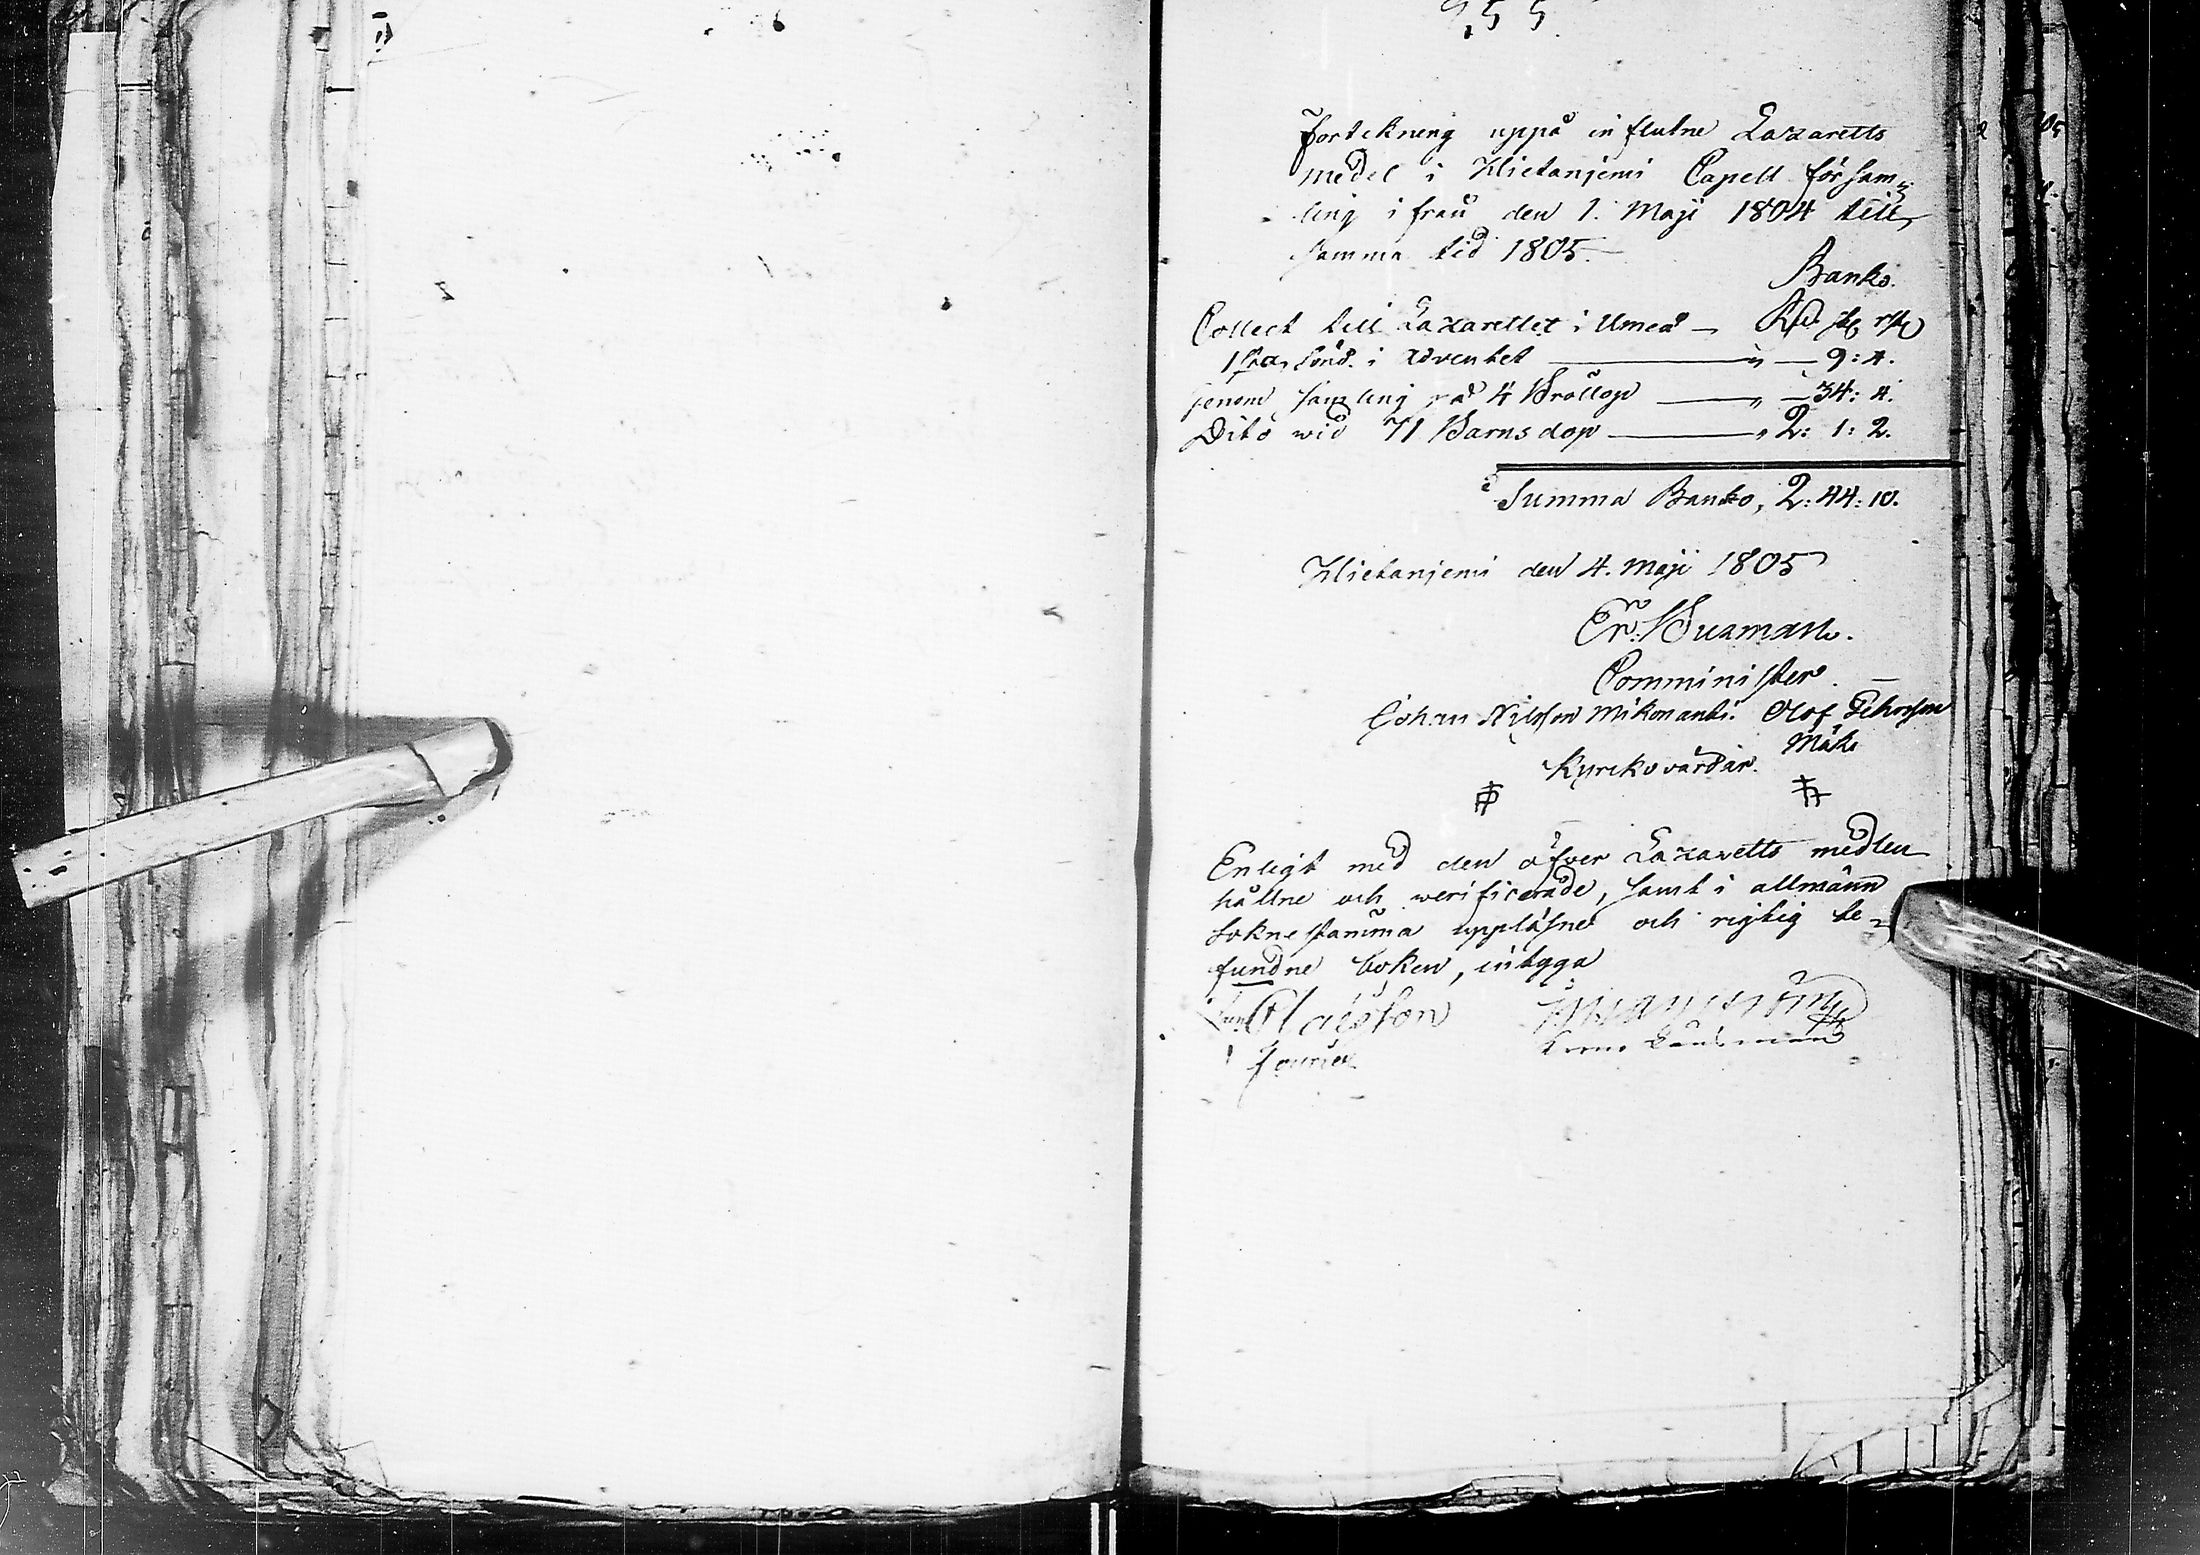 255.
Förtekning uppå influtne Lazaretts
medel i Hietaniemi Capell försam-
ling ifrån den 1. Maji 1804 till
samma tid 1805.
Banko.
Collect till Lazarettet i Umeå — Rd. sk. rst.
1sta Sönd. i Adventet — „ — 9: 4.
genom samling på 4 Bröllop — „ — 34: 4.
Dito wid 71 Barnsdop — „ 2: 1: 2.
Summa Banko, 2: 44: 10.
Hietaniemi den 4. Maji 1805
Er: Burman.
Comminister.
Johan Nilsson Mikonanti. Olof
Mäki
Kyrkovärdar.
Enligt med den öfver Lazaretts medlen
hållne och verificerade, samt i allmänn
Sokne stämma uppläsne och rigtig be-
fundne boken, intyga
Claësson
Fourier
Länsman